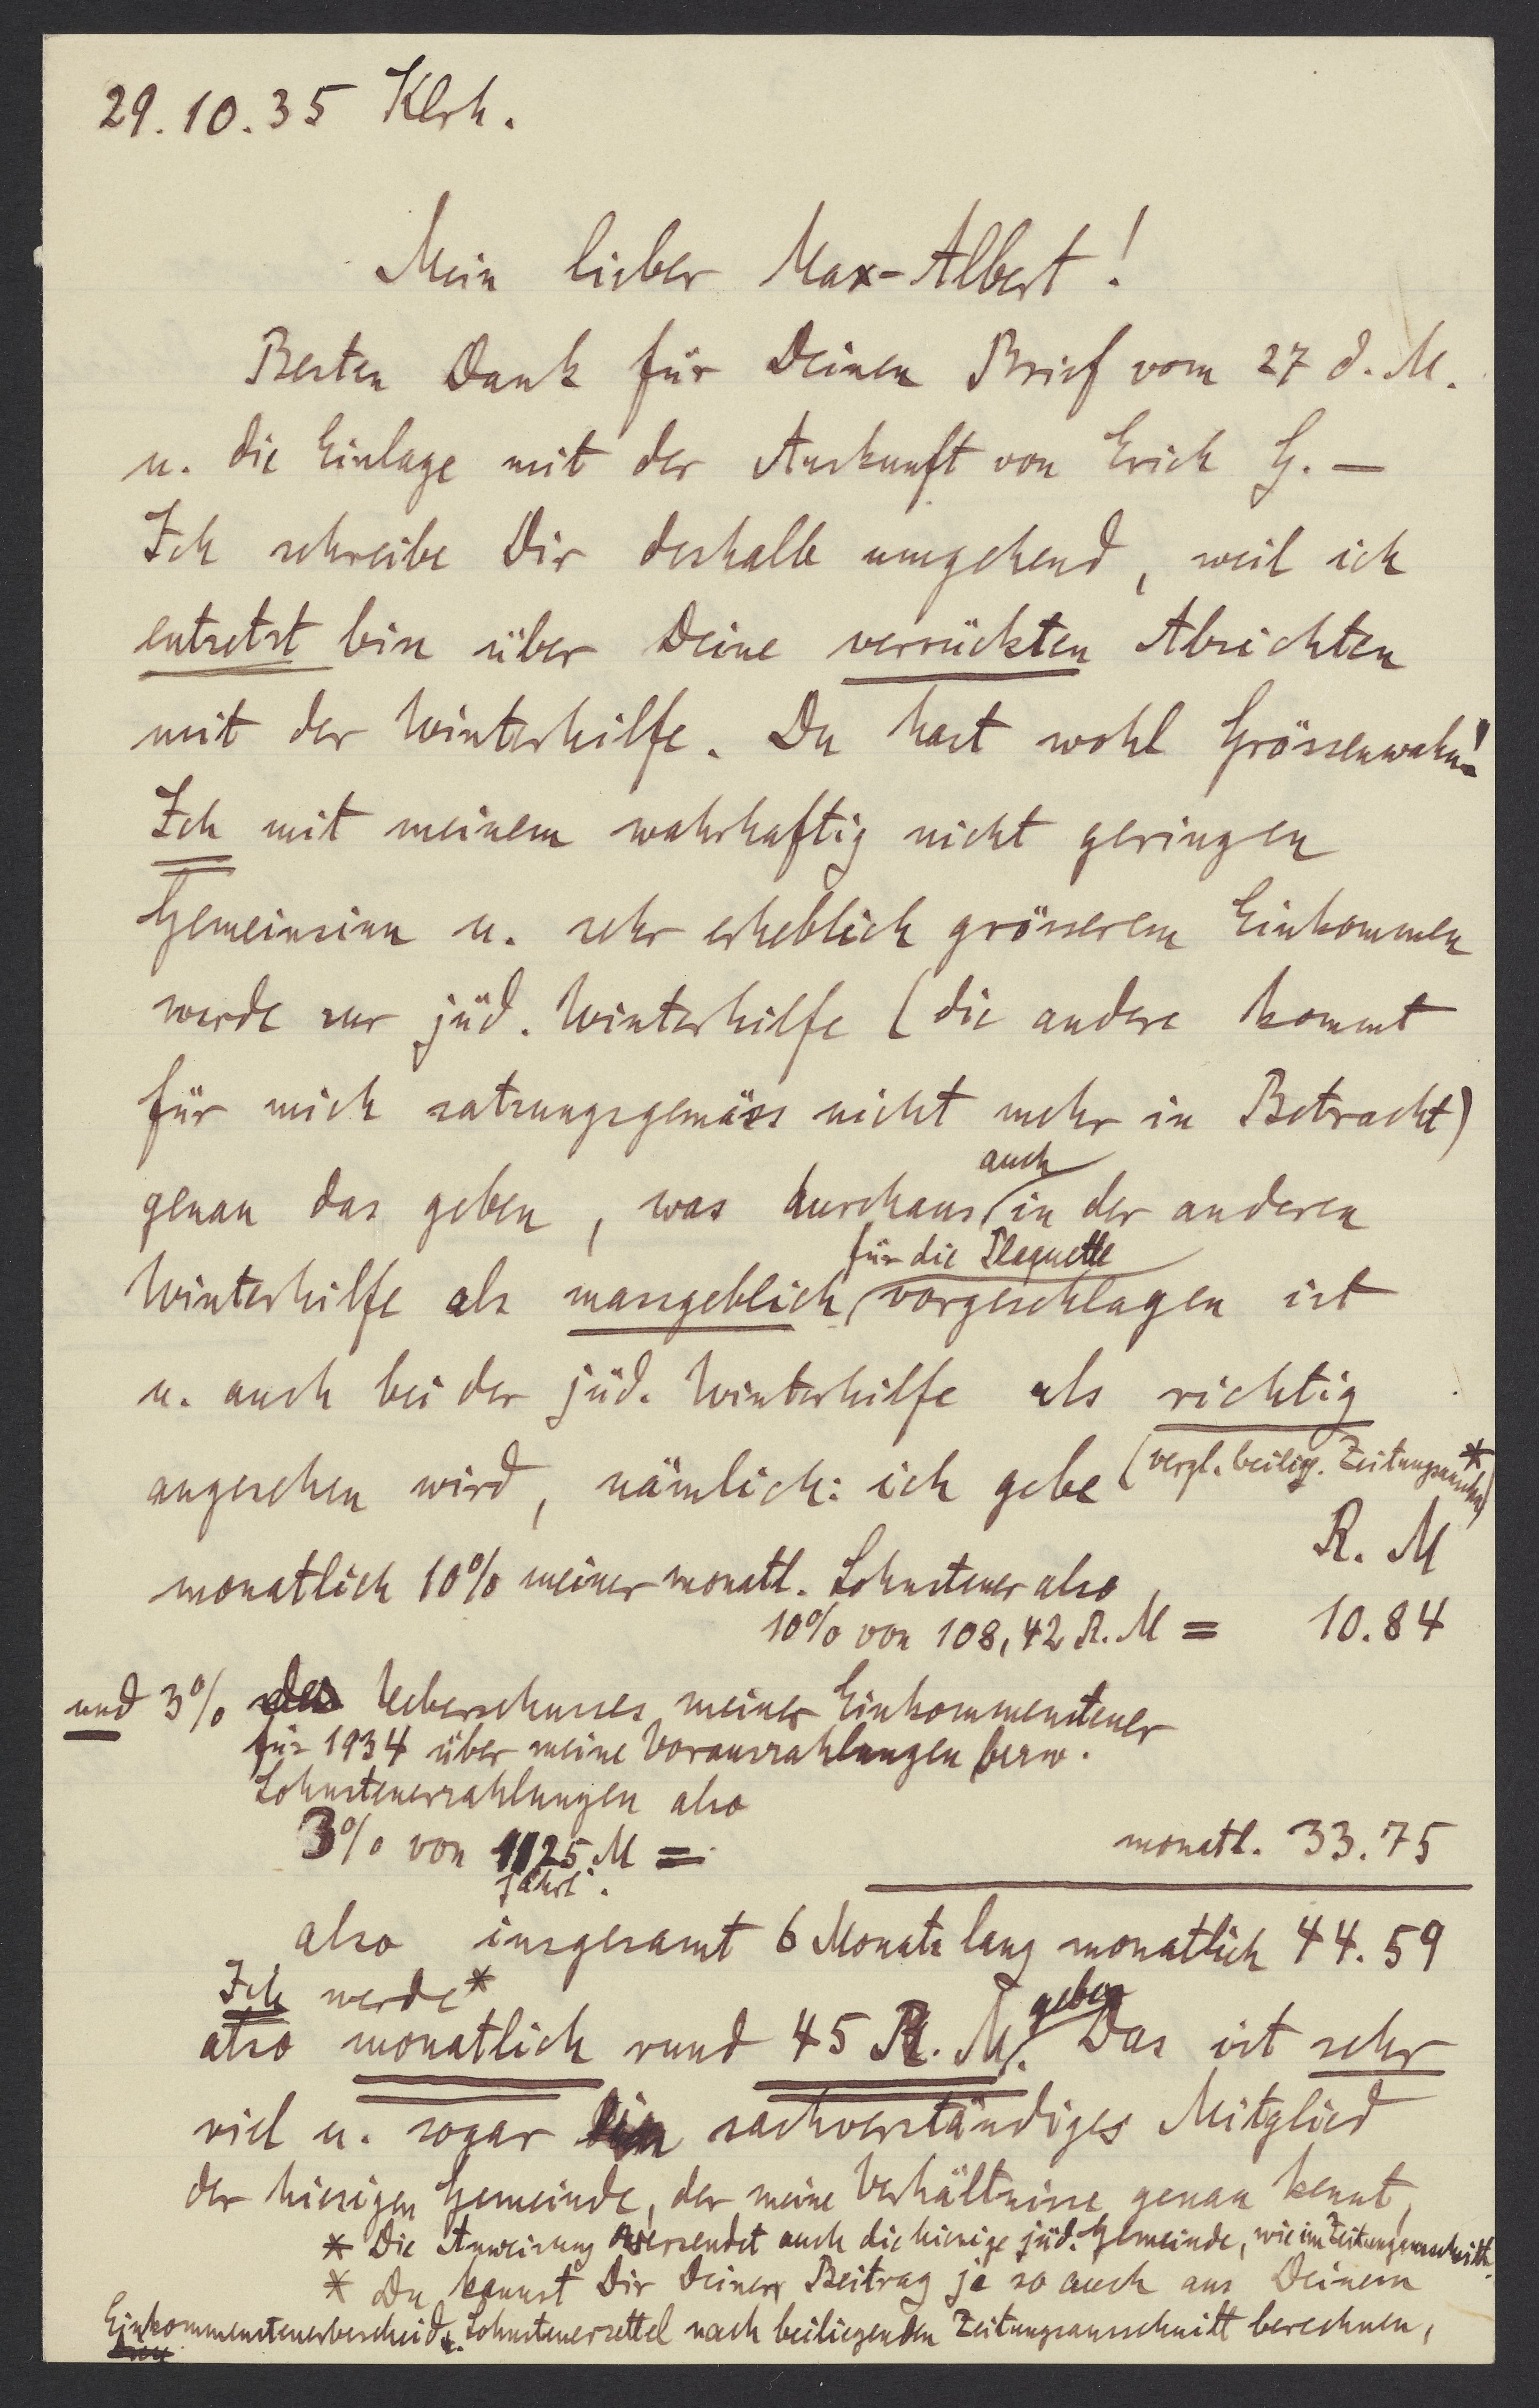 29.10.35 Klrh.
Mein lieber Max-Albert!
Besten Dank für Deinen Brief vom 27 d. M.
u. die Einlage mit der Auskunft von Erich G. —
Ich schreibe Dir deshalb umgehend, weil ich
entsetzt bin über Deine verrückten Absichten
mit der Winterhilfe. Du hast wohl Grössenwahn!
Ich mit meinem wahrhaftig nicht geringen
Gemeinsinn u. sehr erheblich grösserem Einkommen
werde zur jüd. Winterhilfe (die andere kommt
für mich satzungsgemäss nicht mehr in Betracht)
genau das geben, was durchaus auch in der anderen
Winterhilfe als massgeblich für die Plaquette vorgeschlagen ist
u. auch bei der jüd. Winterhilfe als richtig
angesehen wird, nämlich: ich gebe (vergl. beilieg. Zeitungsausschn.)*
R. M
monatlich 10% meiner monatl. Lohnsteuer also
10% von 108,42 R. M = 10.84
und 3% des Ueberschusses meiner Einkommensteuer
für 1934 über meine Vorauszahlungen bezw.
Lohnsteuerzahlungen also
3% von 1125 M = monatl. 33.75
jährl.
also insgesamt 6 Monate lang monatlich 44.59
Ich werde*
also monatlich rund 45 R. M. geben. Das ist sehr
viel u. sogar ein sachverständiges Mitglied
der hiesigen Gemeinde, der meine Verhältnisse genau kennt,
* Die Anweisung versendet auch die hiesige jüd. Gemeinde, wie im Zeitungsausschnitt.
* Du kannst Dir Deinen Beitrag ja so auch aus Deinem
Einkommensteuerbescheid u. Lohnsteuerzettel nach beiliegenden Zeitungsausschnitt berechnen,